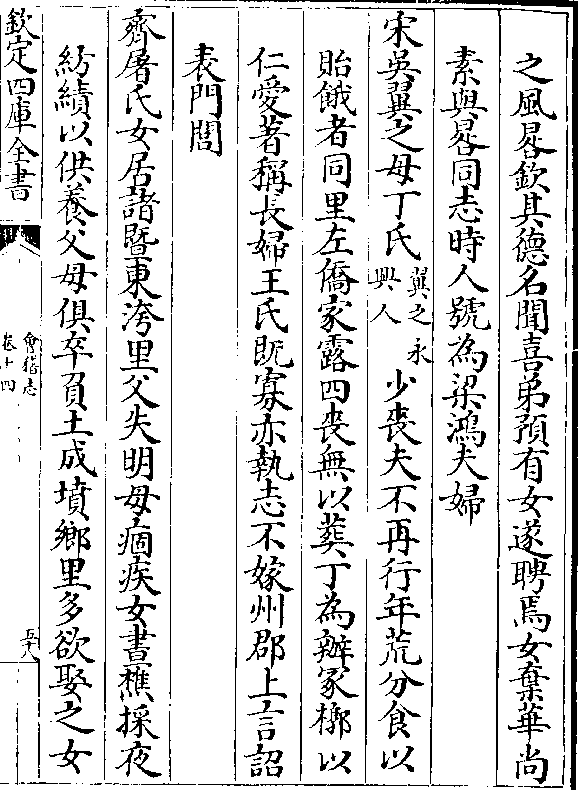 之風晷欽其德名聞喜弟預有女遂聘焉女棄華尚
素與晷同志時人號為梁鴻夫婦
宋吳翼之母丁氏翼之永興人少喪夫不再行年荒分食以
貽餓者同里左僑家露四喪無以葬丁為辦冢槨以
仁愛著稱長婦王氏既寡亦執志不嫁州郡上言詔
表門閭
齊屠氏女居諸暨東洿里父失明母痼疾女晝樵採夜
紡績以供養父母俱卒負土成墳鄉里多欲娶之女
欽定四庫全書
會稽志
卷十四
五十八